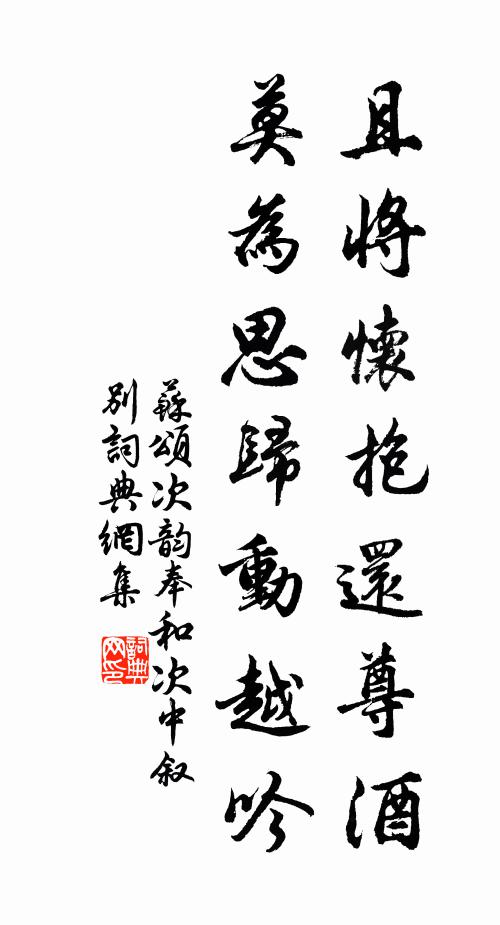 且將懷抱還尊酒
莫為思歸動越吟
蘇頌次韵奉和次中叙
別詞典網集
詞典
网印